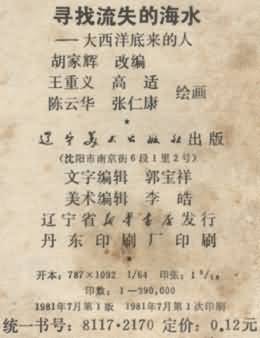 寻找流失的海水
——大西洋底来的人
胡家辉 改编
王重义 高适
陈云华 张仁康 绘画
★
辽宁美术出版社出版
(沈阳市南京街6段1里2号)
文字编辑 郭宝祥
美术编辑 李皓
辽宁省新华书店发行
丹东印刷厂印刷
★
开本：787×1092 1/64 印张：1
印数：1—390,000
1981年7月第1版 1981年7月第1次印刷
统一书号：8117·2170 定价：0.12元